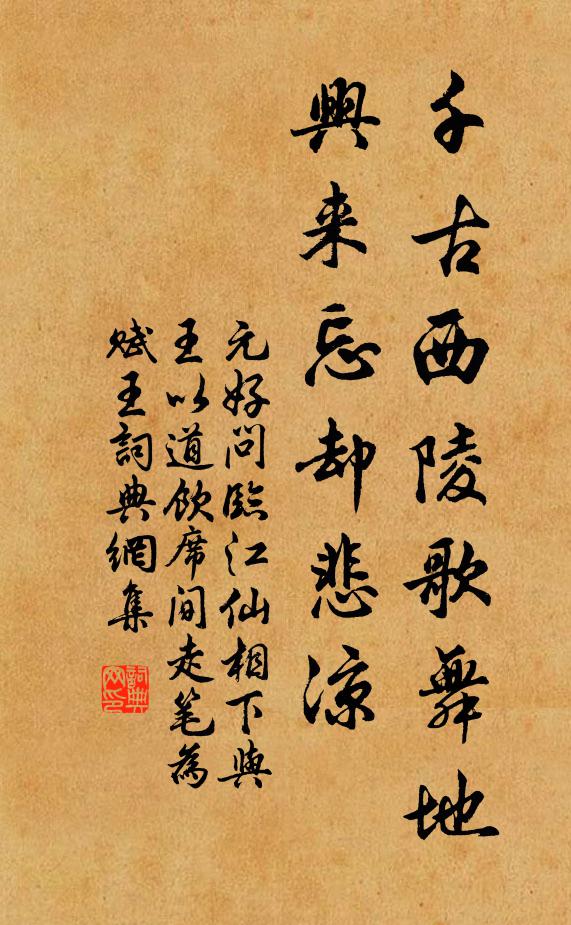 千古西陵歌舞地
興来忘却悲涼
元好問臨江仙相下與
王以道飲席間走笔為
賦王詞典網集
詞典网印